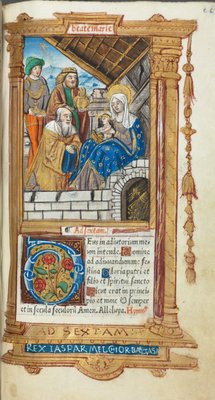 beate marie
¶ Ad sextam.
DEus in adiutorium me
um intende. Domine
ad adiuuandum me fe
stina Gloria patri et
filio et spiritui sancto
Sicut erat in princi
pio et nunc et semper
et in secula seculorũ Amen. Alleluya.
AD SEXTAM
REX IASPAR MELCHIOR